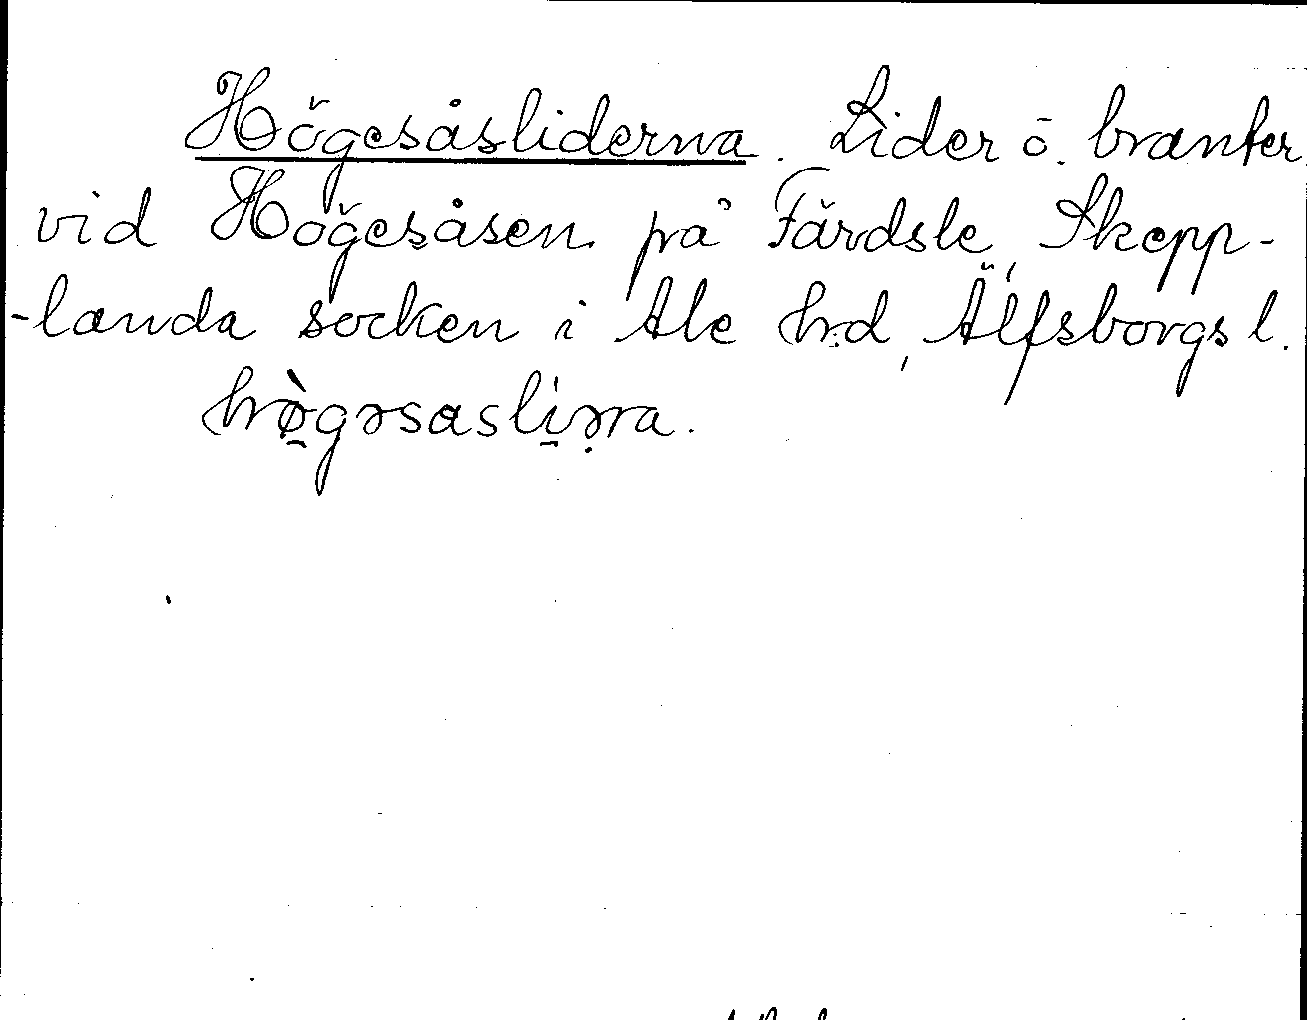 Högesåsliderna. Lider o. branter
vid Högesåsen på Färdsle, Skepp-
-landa socken i Ale hrd, Älfsborgs l.
hø̀gəsasliəɳa.